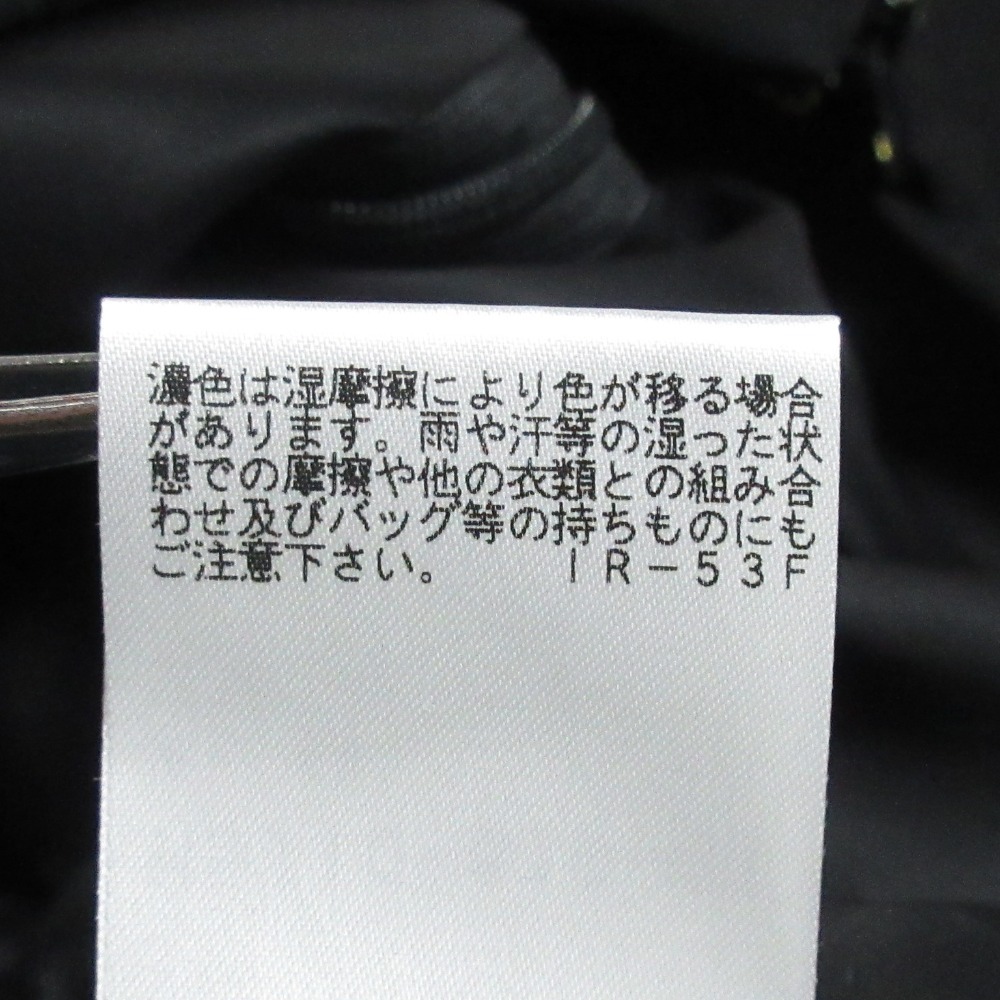 濃色は湿摩擦により色が移る場合
があります。雨や汗等の湿った状
態での摩擦や他の衣類との組み合
わせ及びバッグ等の持ちものにも
ご注意下さい。　　ＩＲ－５３Ｆ